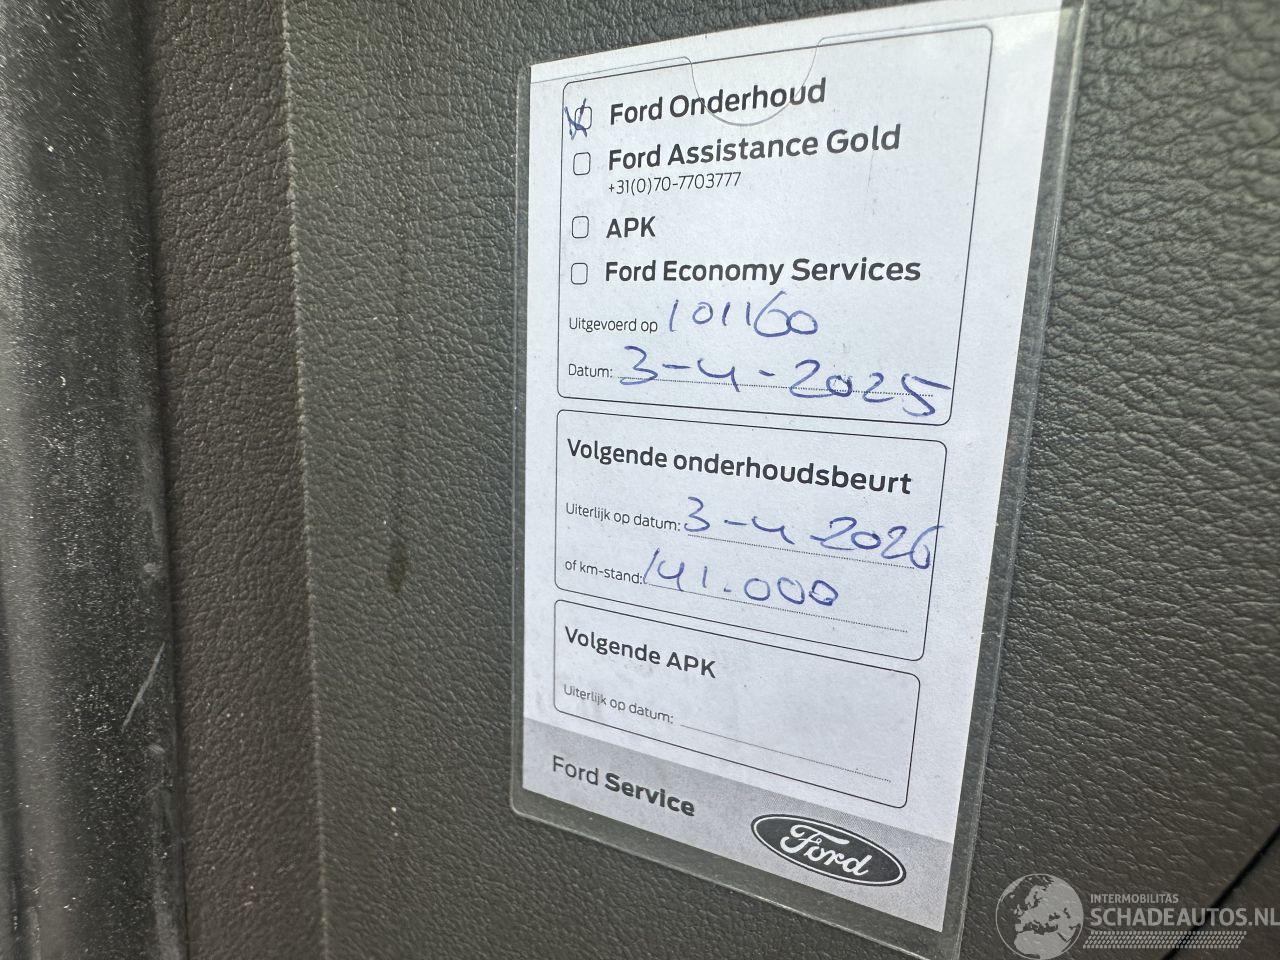 Ford Onderhoud
Ford Assistance Gold
+31(0)70-7703777
APK
Ford Economy Services
Uitgevoerd op 101160
Datum: 3-4-2025
Volgende onderhoudsbeurt
Uiterlijk op datum: 3-4-2026
of km-stand: 141.000
Volgende APK
Uiterlijk op datum:
Ford Service
Ford
INTERMOBILITAS
SCHADEAUTOS.NL